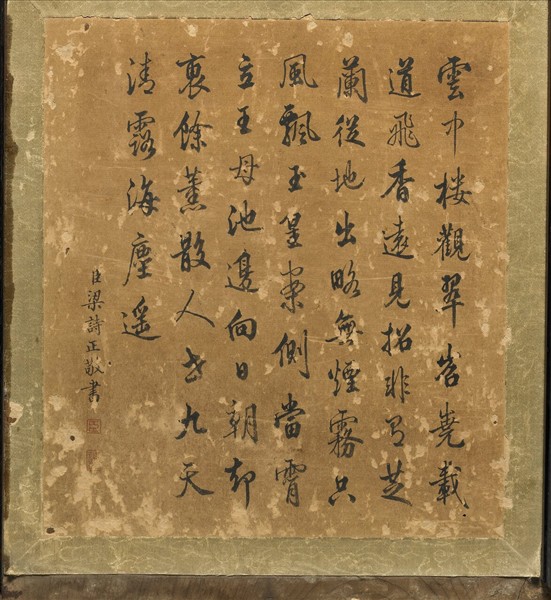 雲中樓觀翠岧嶢載
道飛香遠見招非有芝
蘭從地出略無煙霧只
風飄玉皇案側當霄
立王母池邊向日朝却
裹餘薰散人世九天
清露海塵遥
臣梁詩正敬書